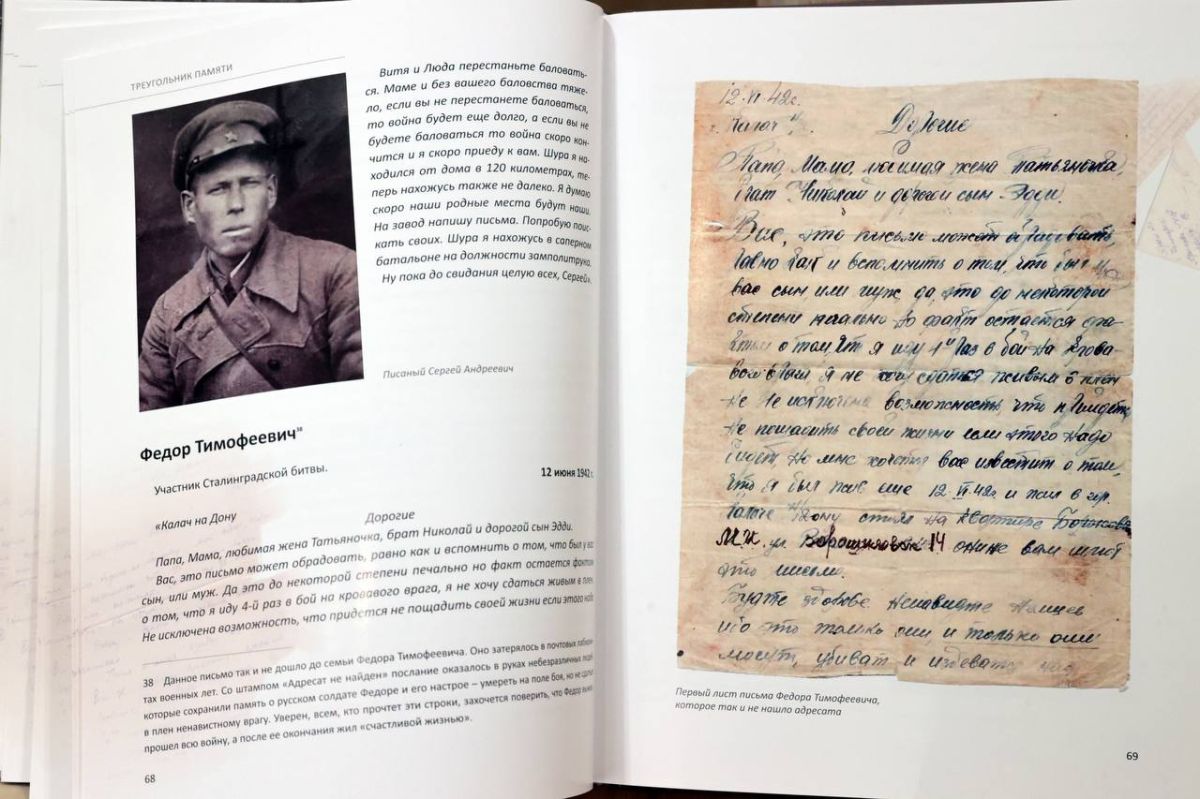 ТРЕУГОЛЬНИК ПАМЯТИ
Витя и Люда перестаньте баловать-
ся. Маме и без вашего баловства тяже-
ло, если вы не перестанете баловаться,
то война будет еще долго, а если вы не
будете баловаться то война скоро кон-
чится и я скоро приеду к вам. Шура я на-
ходился от дома в 120 километрах, те-
перь нахожусь также не далеко. Я думаю
скоро наши родные места будут наши.
На завод напишу письма. Попробую поис-
кать своих. Шура я нахожусь в саперном
батальоне на должности замполитрука.
Ну пока до свидания целую всех, Сергей».
Писаный Сергей Андреевич
Федор Тимофеевич38
Участник Сталинградской битвы.
12 июня 1942 г.
«Калач на Дону
Дорогие
Папа, Мама, любимая жена Татьяночка, брат Николай и дорогой сын Эдди.
Вас, это письмо может обрадовать, равно как и вспомнить о том, что был у вас
сын, или муж. Да это до некоторой степени печально но факт остается фактом
о том, что я иду 4-й раз в бой на кровавого врага, я не хочу сдаться живым в плен.
Не исключена возможность, что придется не пощадить своей жизни если этого надо
38 Данное письмо так и не дошло до семьи Федора Тимофеевича. Оно затерялось в почтовых
тах военных лет. Со штампом «Адресат не найден» послание оказалось в руках небезразличных людей,
которые сохранили память о русском солдате Федоре и его настрое – умереть на поле боя, но не
в плен ненавистному врагу. Уверен, всем, кто прочтет эти строки, захочется поверить, что Федор
прошел всю войну, а после ее окончания жил «счастливой жизнью».
68
12.VI.42г.
Калач
Дорогие
Папа, Мама, любимая жена Татьяночка,
брат Николай и дорогой сын Эдди.
Вас, это письмо может обрадовать,
равно как и вспомнить о том, что был у
вас сын, или муж, да, это до некоторой
степени печально но факт остается фа-
ктом о том, что я иду 4й раз в бой на крова-
вого врага, я не хочу сдаться живым в плен
Не исключена возможность, что придется
не пощадить своей жизни если этого надо
будет, но мне хочется вас известить о том,
что я был жив еще 12.VI.42г и жил в гор.
Калаче Дону стоял на квартире
М.Н. ул. Ворошиловск 14 они же вам шлют
это письмо.
Будте здоровы. Ненавидте
ибо это только они, и только они
могут, убиват и издеват
Первый лист письма Федора Тимофеевича,
которое так и не нашло адресата
69